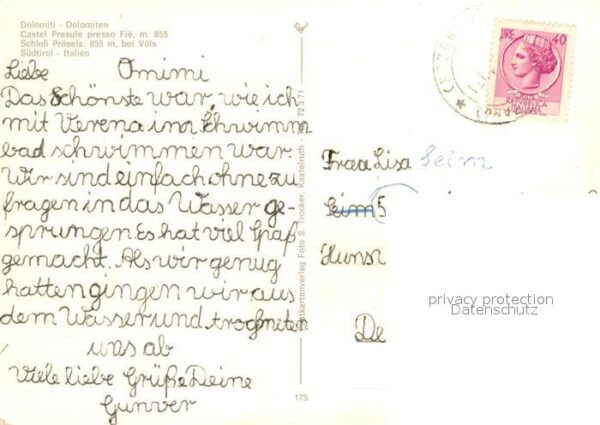 Dolomiti - Dolomiten
Castel Presule presso Fiè, m. 855
Schloß Prösels, 855 m, bei Völs
Südtirol - Italien
Liebe Omimi
Das Schönste war, wie ich
mit Verena im Schwimm
bad schwimmen war.
Wir sind einfach ohne zu
fragen in das Wasser ge-
sprungen Es hat viel Spaß
gemacht. Als wir genug
hatten gingen wir aus
dem Wasser und trochneten
uns ab
Viele liebe Grüße Deine
Gunver
Postkartenverlag Foto S. Trocker, Kastelruth
72371
175
LIRE 40
REPVBBLICA
ITALIANA
Frau Lisa Seim
Seim 5
Hunsr
De
privacy protection
Datenschutz